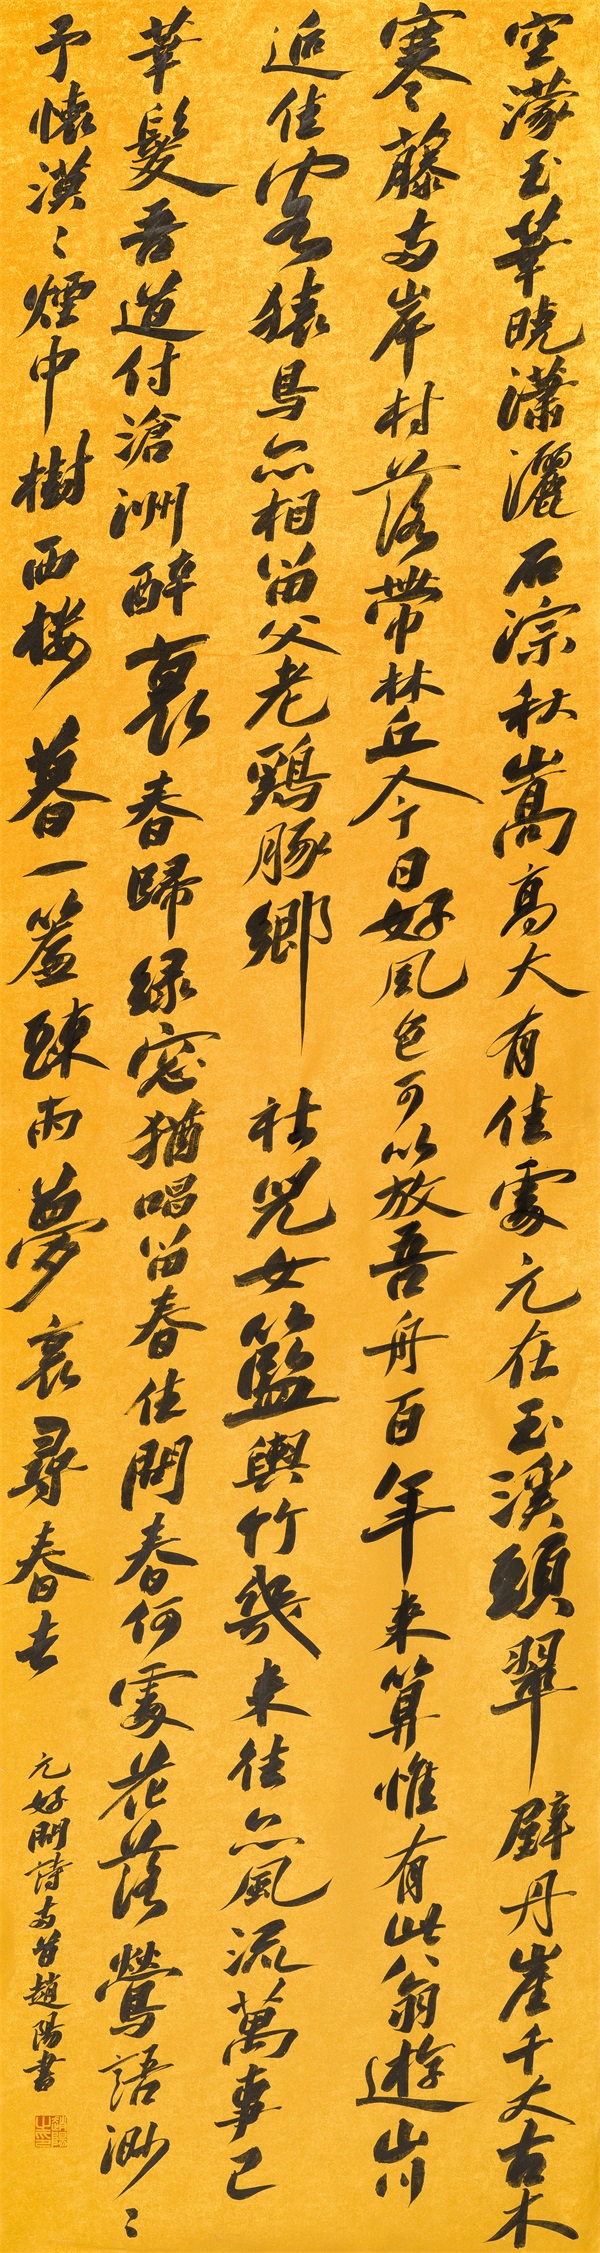 空濛玉華曉瀟灑石淙秋嵩高大有佳處元在玉溪頭翠壁丹崖千丈古木
寒藤兩岸村落帶林丘今日好風色可以放吾舟百年来算惟有此翁遊山川
逅佳客猿鳥亦相留父老鷄豚鄉社兒女籃輿竹幾来往亦風流萬事已
華髮吾道付滄洲醉裏春歸緑窓猶唱留春住問春何處花落鶯語渺〻
予懷漠〻煙中樹西樓暮一簾疎雨夢裏尋春去
元好問詩兩首趙陽書